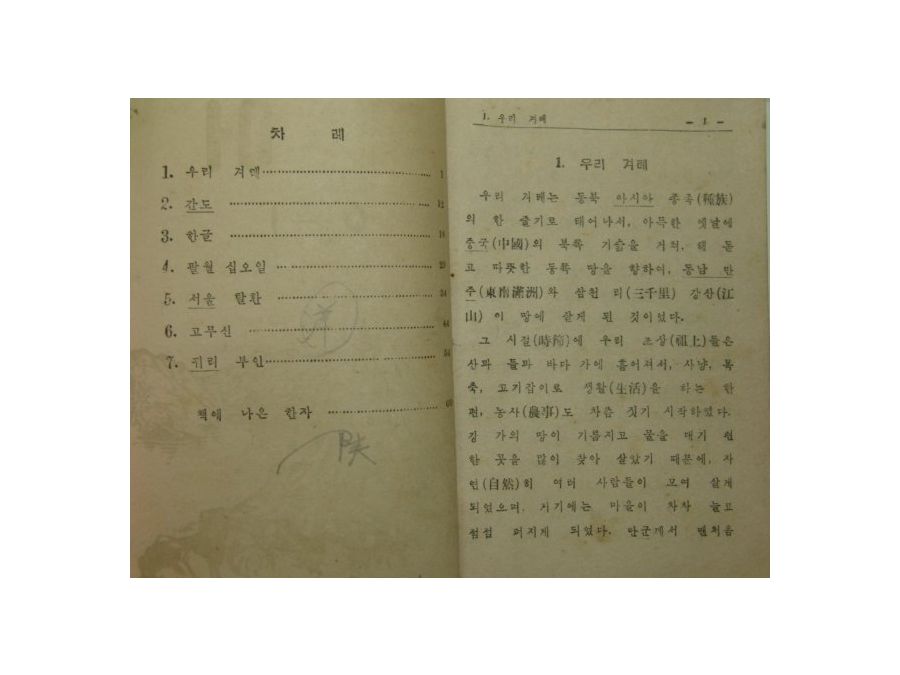 차 례
1. 우리 겨레 1
2. 간도 12
3. 한글 18
4. 팔월 십오일 23
5. 서울 탈환 34
6. 고무신 44
7. 퀴리 부인 54
책에 나온 한자 60
1. 우리 겨레 - 1 -
1. 우리 겨레
우리 겨레는 동북 아시아 종족(種族)
의 한 줄기로 태어나서, 아득한 옛날에
중국(中國)의 북쪽 기슭을 거쳐, 해 돋
고 따뜻한 동쪽 땅을 향하여, 동남 만
주(東南滿洲)와 삼천 리(三千里) 강산(江
山) 이 땅에 살게 된 것이었다.
그 시절(時節)에 우리 조상(祖上)들은
산과 들과 바다 가에 흩어져서, 사냥, 목
축, 고기잡이로 생활(生活)을 하는 한
편, 농사(農事)도 차츰 짓기 시작하였다.
강 가의 땅이 기름지고 물을 대기 편
한 곳을 많이 찾아 살았기 때문에, 자
연(自然)히 여러 사람들이 모여 살게
되었으며, 저기에는 마을이 차차 늘고
점점 퍼지게 되었다. 단군께서 맨처음